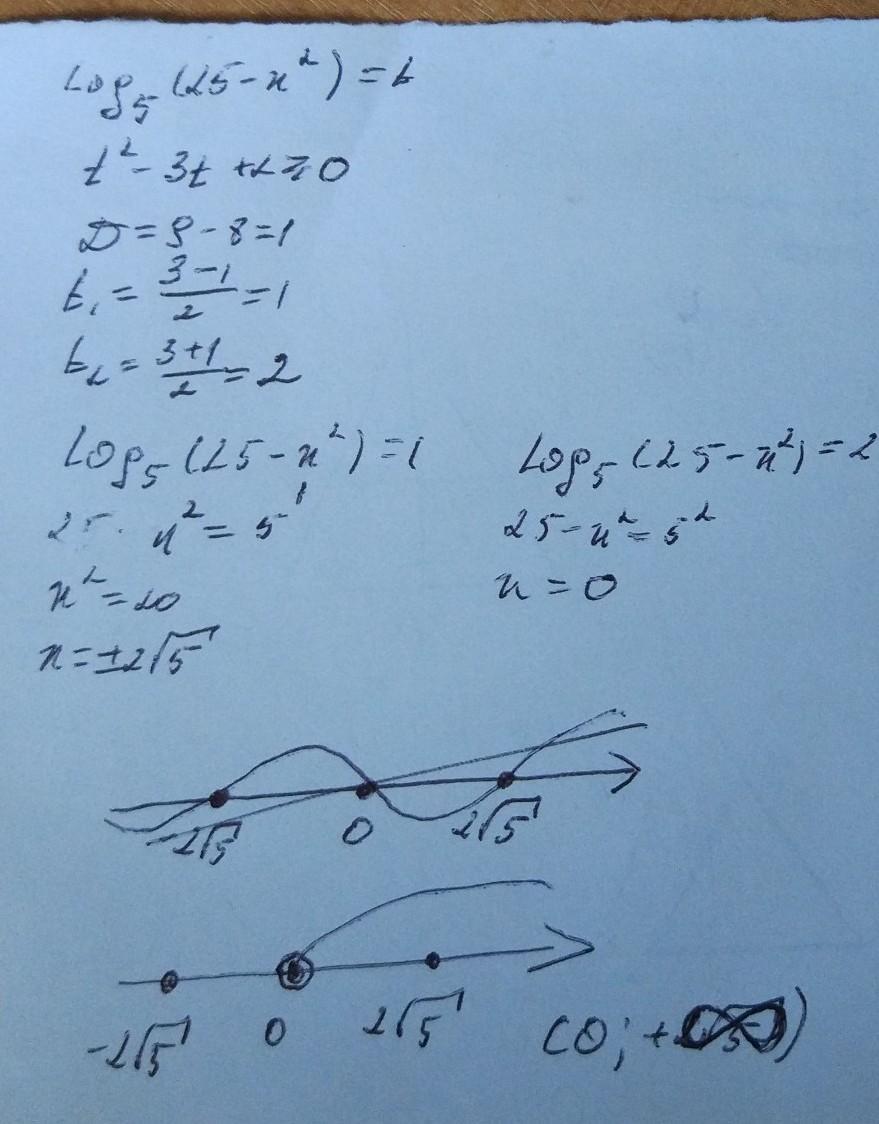 log₅(25-x²)=t
t²-3t+2≥0
D=9-8=1
t₁=\frac{3-1}{2}=1
t₂=\frac{3+1}{2}=2
log₅(25-x²)=1
25-x²=5¹
x²=20
x=±2√5
log₅(25-x²)=2
25-x²=5²
x=0
-2√5 0 2√5
-2√5 0 2√5 (0;+∞)